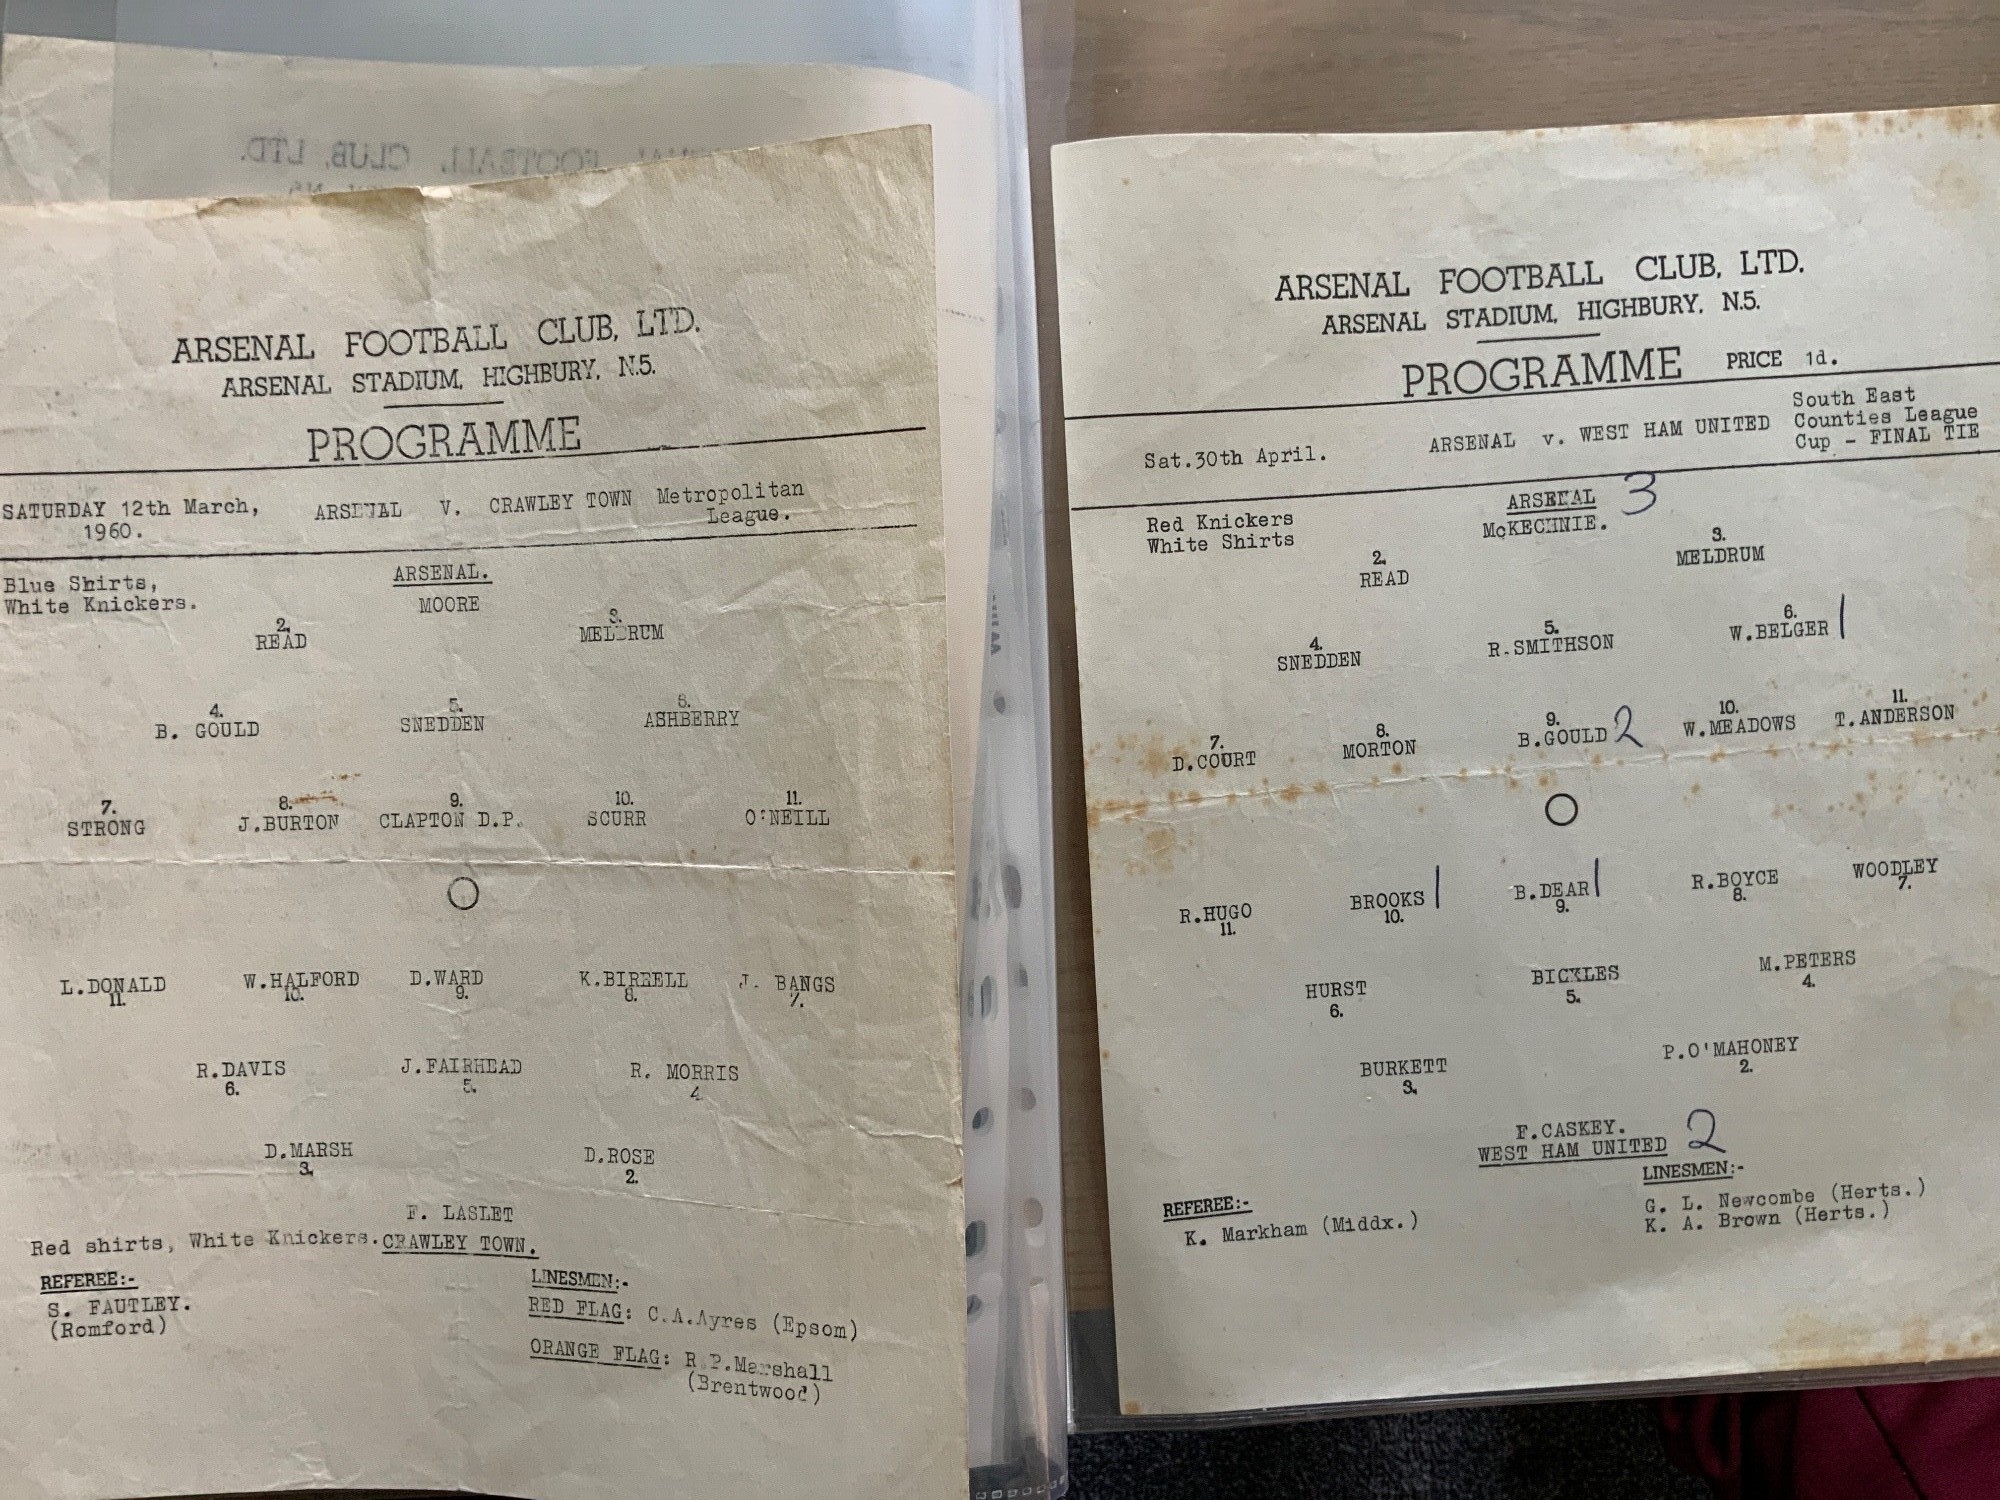 ARSENAL FOOTBALL CLUB, LTD.
ARSENAL STADIUM, HIGHBURY, N.5.
PROGRAMME
SATURDAY 12th March, 1960.
ARSENAL V. CRAWLEY TOWN
Metropolitan League.
Blue Shirts,
White Knickers.
ARSENAL.
MOORE
2.
READ
3.
MELDRUM
4.
B. GOULD
5.
SNEDDEN
6.
ASHBERRY
7.
STRONG
8.
J.BURTON
9.
CLAPTON D.P.
10.
SCURR
11.
O'NEILL
L.DONALD
11.
W.HALFORD
10.
D.WARD
9.
K.BIRRELL
8.
J. BANGS
7.
R.DAVIS
6.
J.FAIRHEAD
5.
R. MORRIS
4.
D.MARSH
3.
D.ROSE
2.
F. LASLET
Red shirts, White Knickers. CRAWLEY TOWN.
REFEREE:-
S. FAUTLEY.
(Romford)
LINESMEN:-
RED FLAG: C.A.Ayres (Epsom)
ORANGE FLAG: R.P.Marshall
(Brentwood)
ARSENAL FOOTBALL CLUB, LTD.
ARSENAL STADIUM, HIGHBURY, N.5.
PROGRAMME PRICE 1d.
Sat.30th April.
ARSENAL v. WEST HAM UNITED
South East
Counties League
Cup - FINAL TIE
Red Knickers
White Shirts
ARSENAL 3
McKECHNIE.
2.
READ
3.
MELDRUM
4.
SNEDDEN
5.
R.SMITHSON
6.
W.BELGER 1
7.
D.COURT
8.
MORTON
9.
B.GOULD 2
10.
W.MEADOWS
11.
T.ANDERSON
R.HUGO
11.
BROOKS 1
10.
B.DEAR 1
9.
R.BOYCE
8.
WOODLEY
7.
HURST
6.
BICKLES
5.
M.PETERS
4.
BURKETT
3.
P.O'MAHONEY
2.
F.CASKEY.
WEST HAM UNITED 2
REFEREE:-
K. Markham (Middx.)
LINESMEN:-
G. L. Newcombe (Herts.)
K. A. Brown (Herts.)